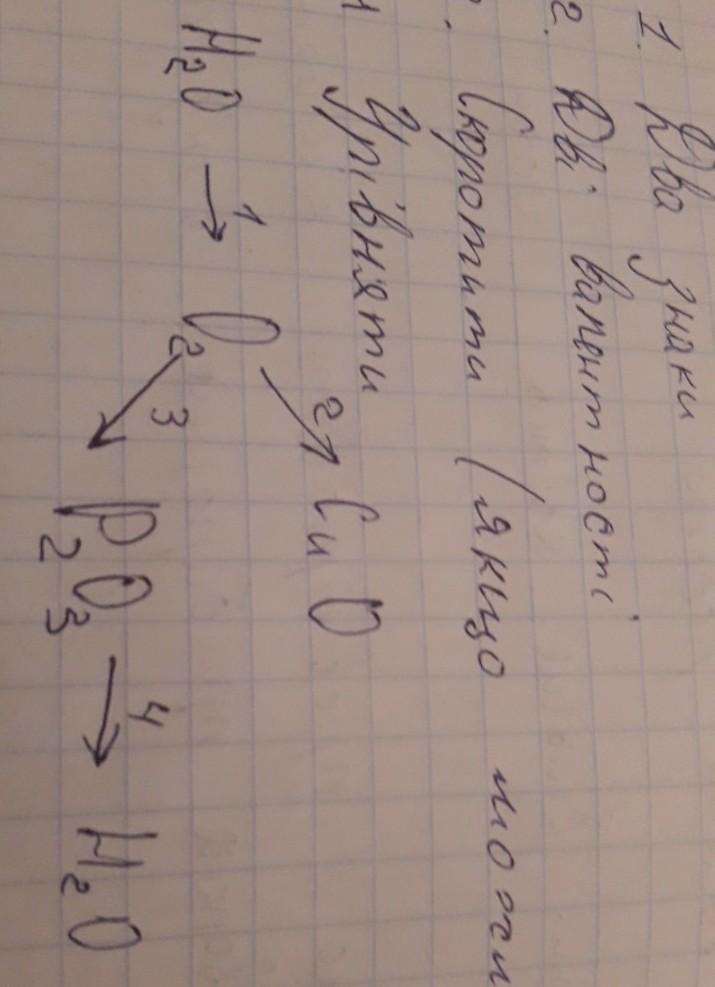 1. Два знаки
2. Дві валентності
Скоротити (якщо можн
Урівняти
2 CuO
H₂O 1→ O₂
3 4
P₂O₃ → H₂O